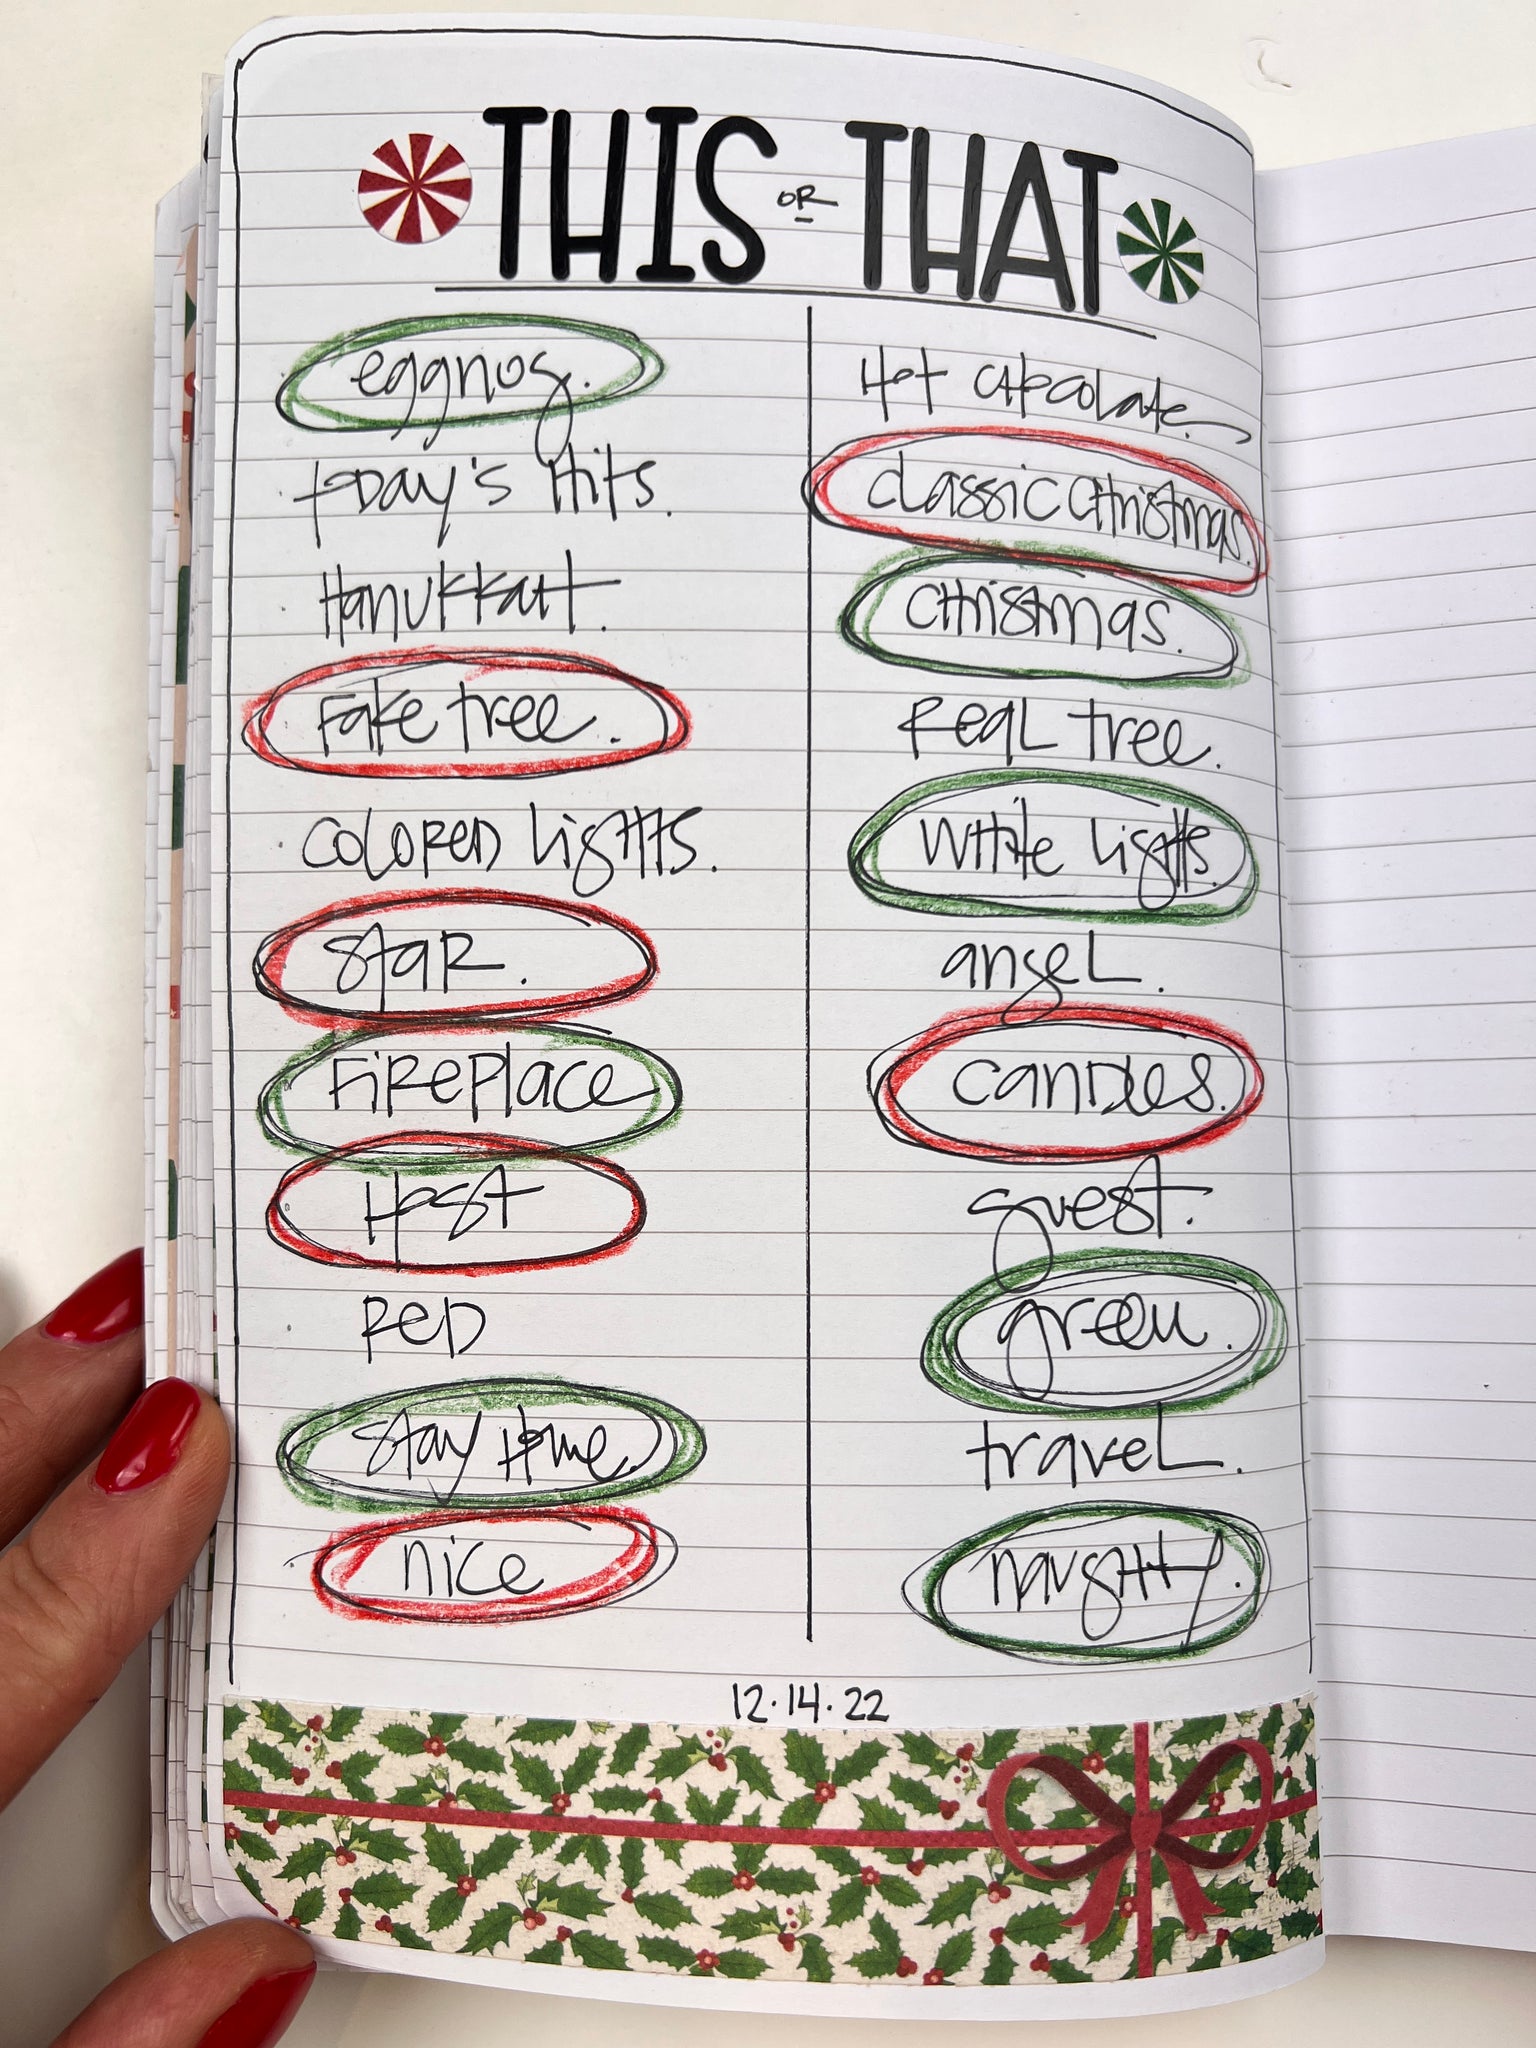 THIS OR THAT
eggnog. Hot Chocolate.
today's Hits. Classic Christmas.
Hanukkah. Christmas.
Fake tree. Real tree.
Colored Lights. White Lights.
Star. angel.
Fireplace Candles.
Host guest.
Red green.
stay Home. travel.
nice naughty.
12.14.22